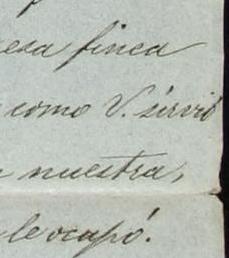 esa finca
como V. sirvió
nuestra,
le ocupó.